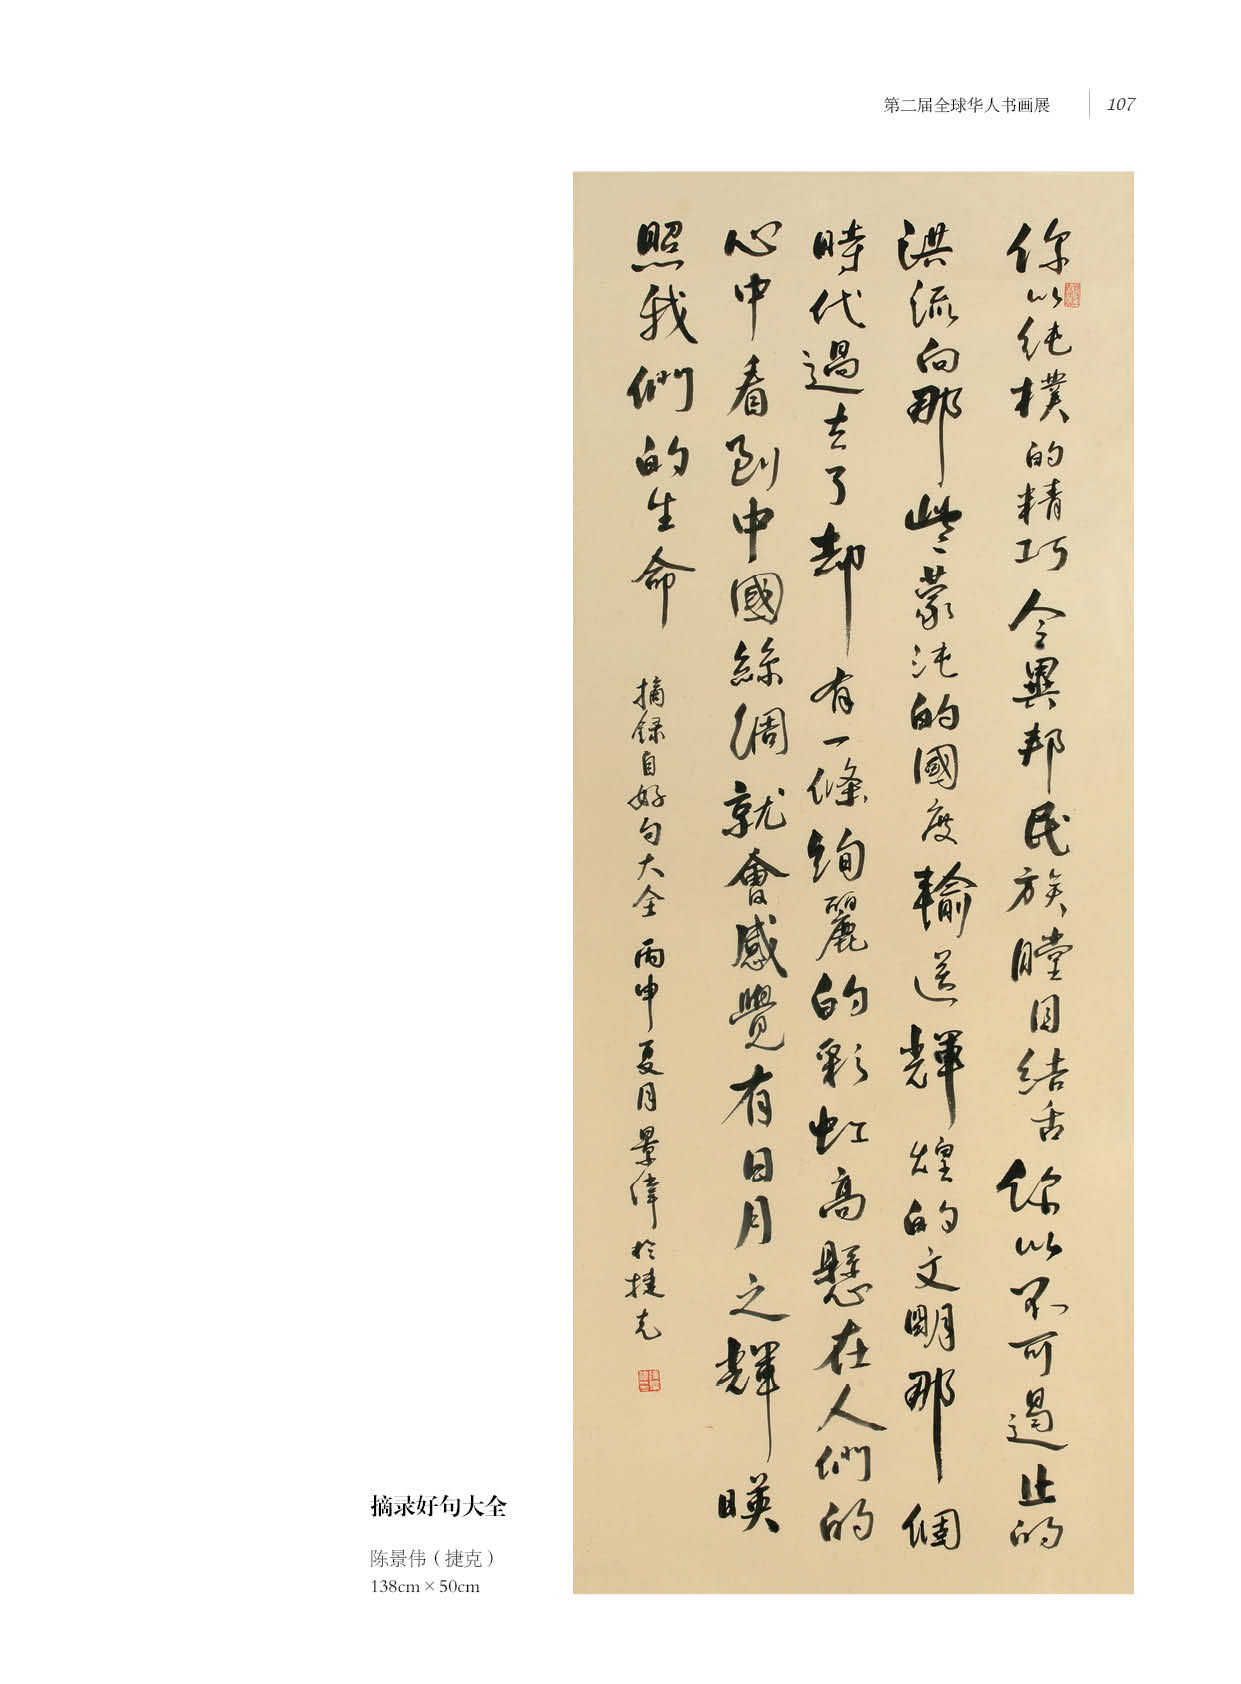 第二届全球华人书画展 107
你以纯樸的精巧令異邦民族瞠目结舌你以不可遏止的
洪流向那些蒙沌的國度輸送輝煌的文明那個
時代過去了却有一條絢麗的彩虹高懸在人們的
心中看到中國絲綢就會感覺有日月之輝暎
照我們的生命
摘録自好句大全丙申夏月景偉於捷克
摘录好句大全
陈景伟（捷克）
138cm×50cm